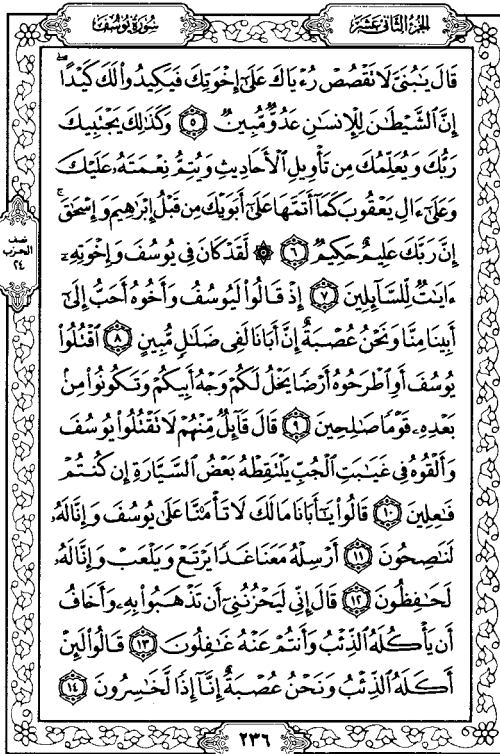 سُورَةُ يُوسُفَ
الجُزْءُ الثَّانِي عَشَرَ
قَالَ يَـٰبُنَىَّ لَا تَقْصُصْ رُءْيَاكَ عَلَىٰٓ إِخْوَتِكَ فَيَكِيدُوا۟ لَكَ كَيْدًا ۖ
إِنَّ ٱلشَّيْطَـٰنَ لِلْإِنسَـٰنِ عَدُوٌّ مُّبِينٌ ٥ وَكَذَٰلِكَ يَجْتَبِيكَ
رَبُّكَ وَيُعَلِّمُكَ مِن تَأْوِيلِ ٱلْأَحَادِيثِ وَيُتِمُّ نِعْمَتَهُۥ عَلَيْكَ
وَعَلَىٰٓ ءَالِ يَعْقُوبَ كَمَآ أَتَمَّهَا عَلَىٰٓ أَبَوَيْكَ مِن قَبْلُ إِبْرَٰهِيمَ وَإِسْحَـٰقَ ۚ
إِنَّ رَبَّكَ عَلِيمٌ حَكِيمٌ ٦ ۞ لَّقَدْ كَانَ فِى يُوسُفَ وَإِخْوَتِهِۦٓ
ءَايَـٰتٌ لِّلسَّآئِلِينَ ٧ إِذْ قَالُوا۟ لَيُوسُفُ وَأَخُوهُ أَحَبُّ إِلَىٰٓ
أَبِينَا مِنَّا وَنَحْنُ عُصْبَةٌ إِنَّ أَبَانَا لَفِى ضَلَـٰلٍ مُّبِينٍ ٨ ٱقْتُلُوا۟
يُوسُفَ أَوِ ٱطْرَحُوهُ أَرْضًا يَخْلُ لَكُمْ وَجْهُ أَبِيكُمْ وَتَكُونُوا۟ مِنۢ
بَعْدِهِۦ قَوْمًا صَـٰلِحِينَ ٩ قَالَ قَآئِلٌ مِّنْهُمْ لَا تَقْتُلُوا۟ يُوسُفَ
وَأَلْقُوهُ فِى غَيَـٰبَتِ ٱلْجُبِّ يَلْتَقِطْهُ بَعْضُ ٱلسَّيَّارَةِ إِن كُنتُمْ
فَـٰعِلِينَ ١٠ قَالُوا۟ يَـٰٓأَبَانَا مَا لَكَ لَا تَأْمَ۫نَّا عَلَىٰ يُوسُفَ وَإِنَّا لَهُۥ
لَنَـٰصِحُونَ ١١ أَرْسِلْهُ مَعَنَا غَدًا يَرْتَعْ وَيَلْعَبْ وَإِنَّا لَهُۥ
لَحَـٰفِظُونَ ١٢ قَالَ إِنِّى لَيَحْزُنُنِىٓ أَن تَذْهَبُوا۟ بِهِۦ وَأَخَافُ
أَن يَأْكُلَهُ ٱلذِّئْبُ وَأَنتُمْ عَنْهُ غَـٰفِلُونَ ١٣ قَالُوا۟ لَئِنْ
أَكَلَهُ ٱلذِّئْبُ وَنَحْنُ عُصْبَةٌ إِنَّآ إِذًا لَّخَـٰسِرُونَ ١٤
نصف
الحزب
٢٤
٢٣٦